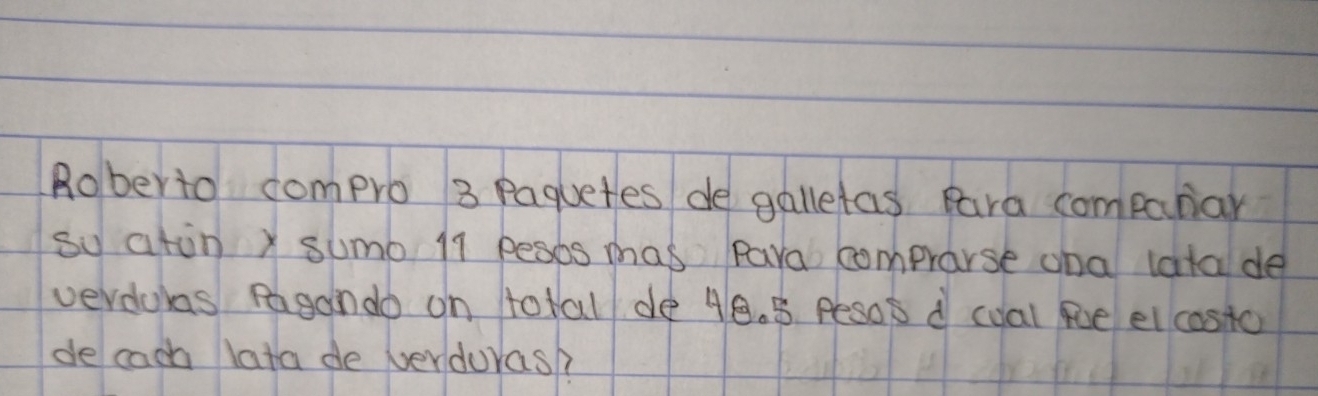 Roberto compro 3 paquetes de galletas para compañar
su atún y sumo 11 pesos mas para comprarse una lata de
verduras Pagando un total de 48.5 pesos ¿ cual fue el costo
de cada lata de verduras?